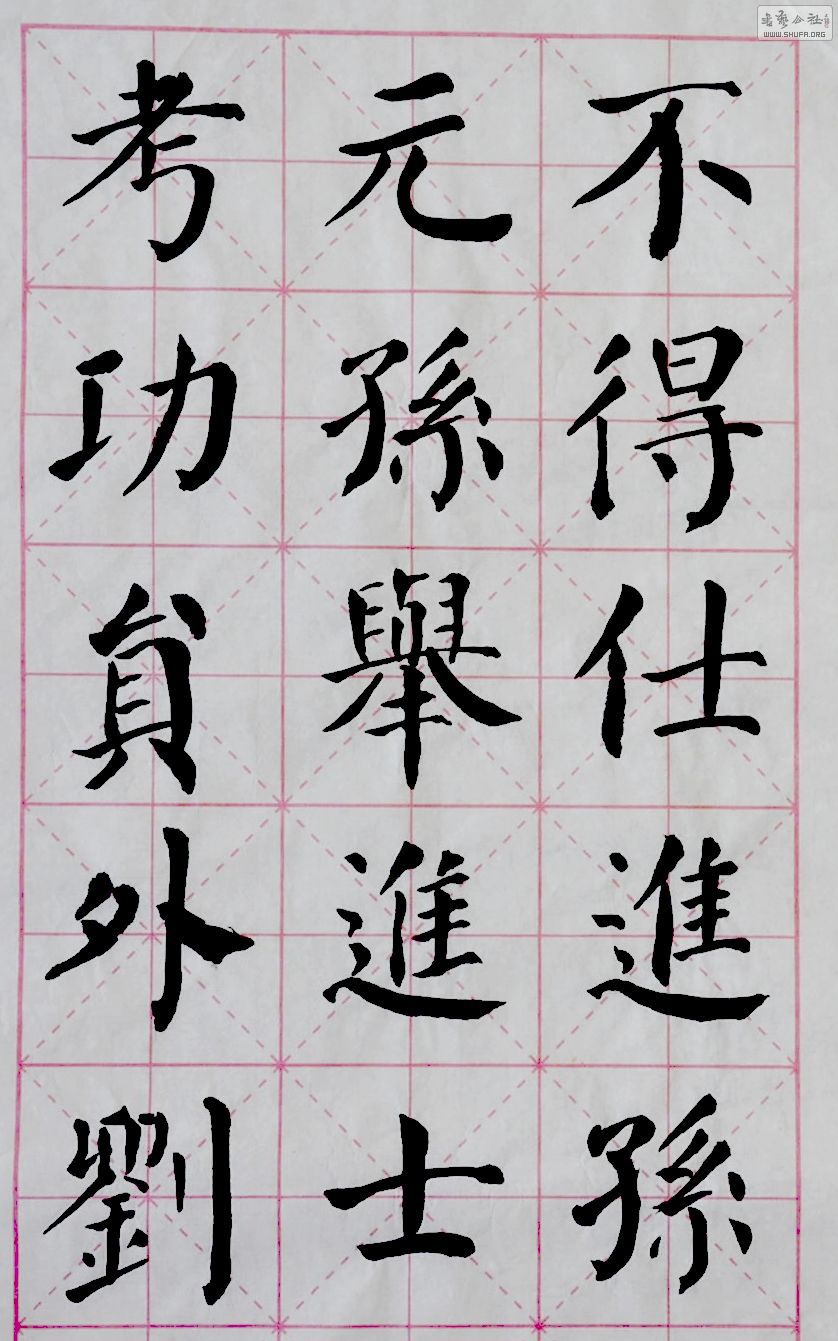 不得仕進孫
元孫舉進士
考功員外劉
WWW.SHUFA.ORG